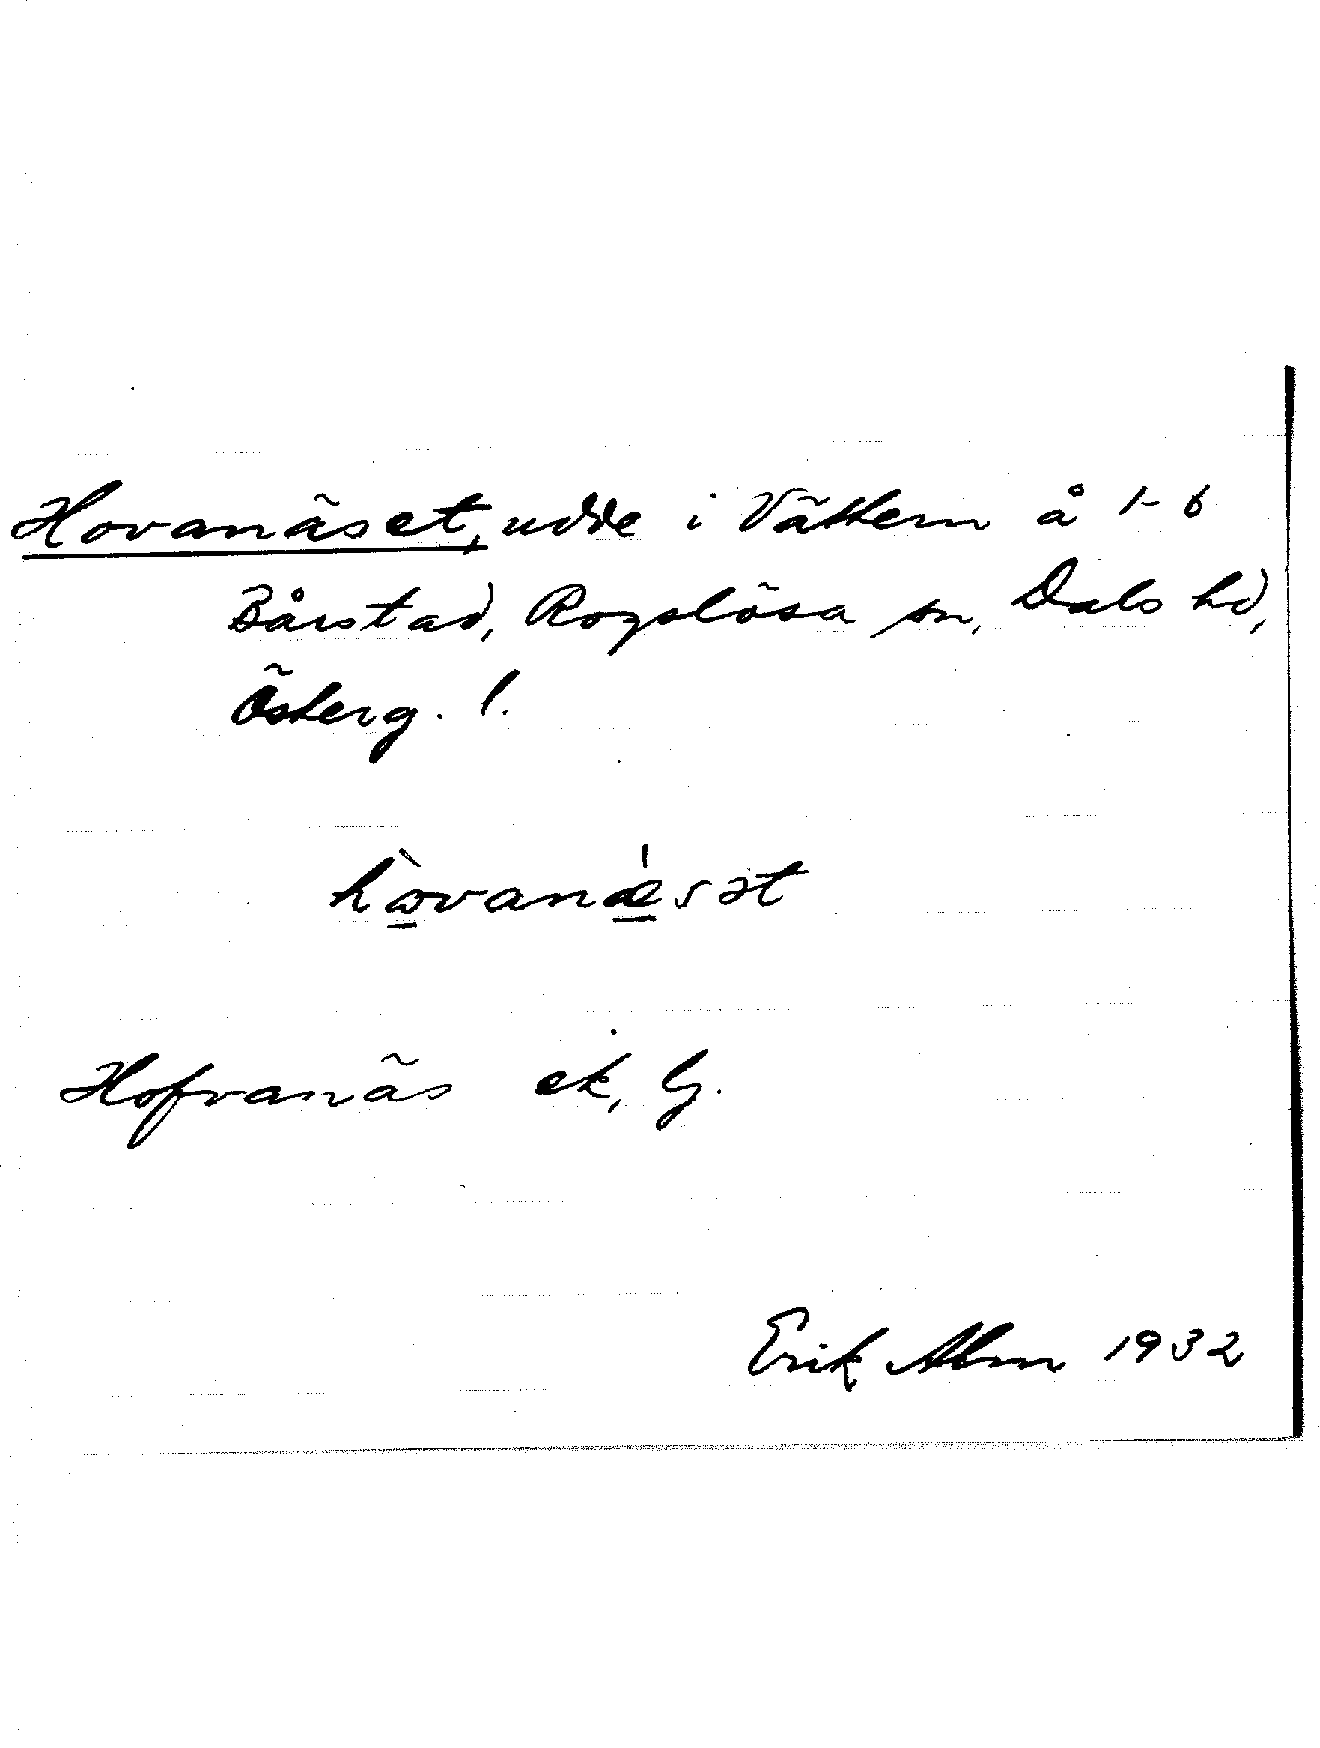 Hovanäset, udde i Vättern å 1-6
Bårstad, Rogslösa sn, Dals hd,
Österg. l.
hòvanǽsət
Hofvanäs ek, G.
Erik Abm 1932